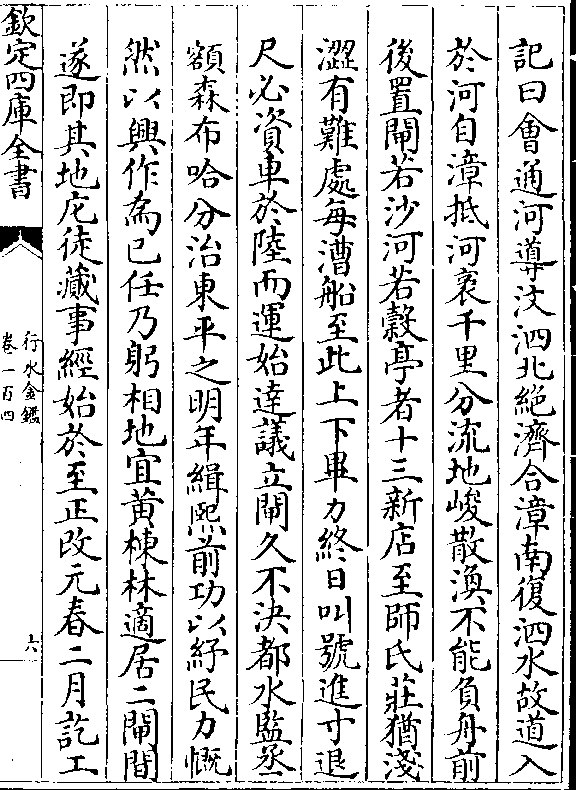 記曰會通河導汶泗北絶濟合漳南復泗水故道入
於河自漳抵河袤千里分流地峻散渙不能負舟前
後置閘若沙河若穀亭者十三新店至師氏莊猶淺
澀有難處每漕船至此上下畢力終日叫號進寸退
尺必資車於陸而運始達議立閘久不決都水監丞
額森布哈分治東平之明年緝熙前功以紓民力慨
然以興作為已任乃躬相地宜黃棟林適居二閘間
遂即其地庀徒蕆事經始於至正改元春二月訖工
欽定四庫全書
行水金鑑
卷一百四
六